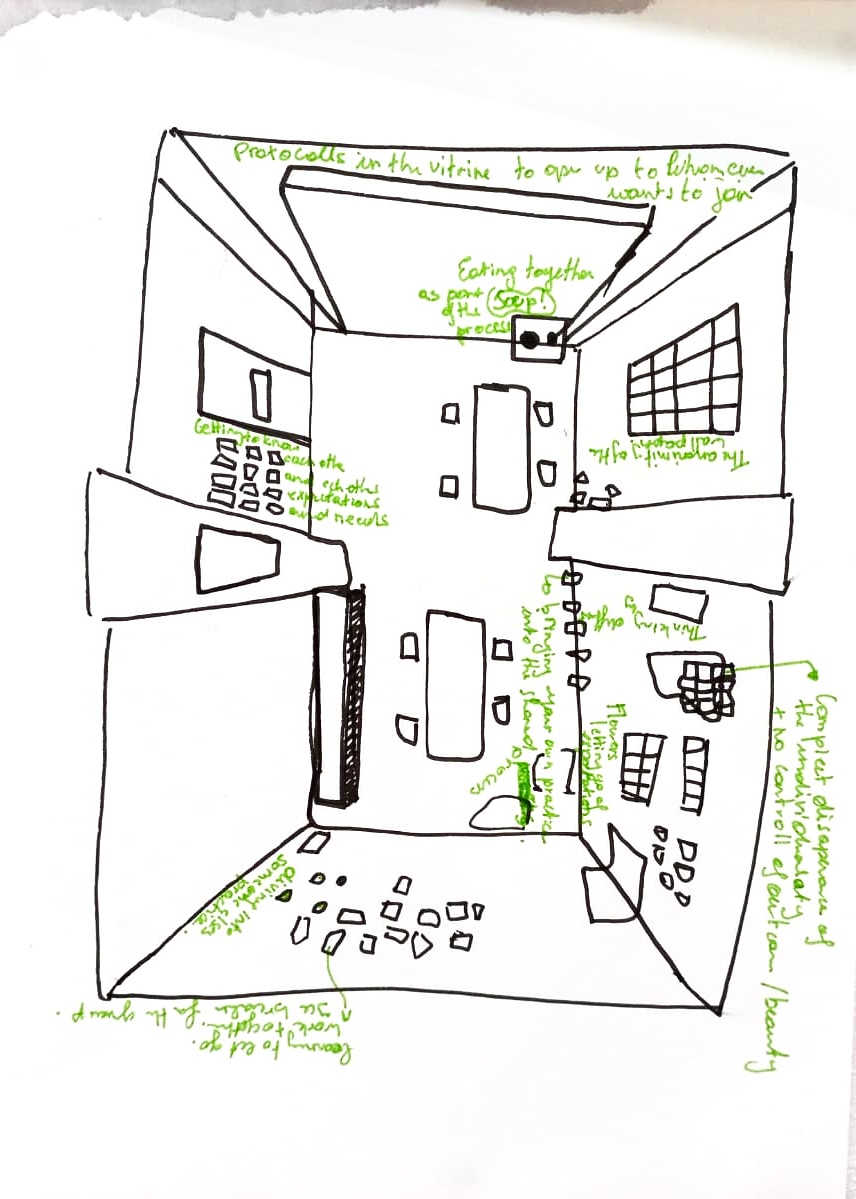 Protocolls in the vitrine to open up to whomever
wants to join
Eating together
as part soup!
of the
process
Getting to know
each othe
and echothe
expectations
and needs
The anonimity of the
wallpaper
Thinking
by
to bringing your own practice
into the shared
process
Flowers
letting go of
expectations
Compleet disaperance of
the individualaty
+ no controll of outcom / beauty
diving into
someone else's
practice.
learning to let go.
work together.
group.